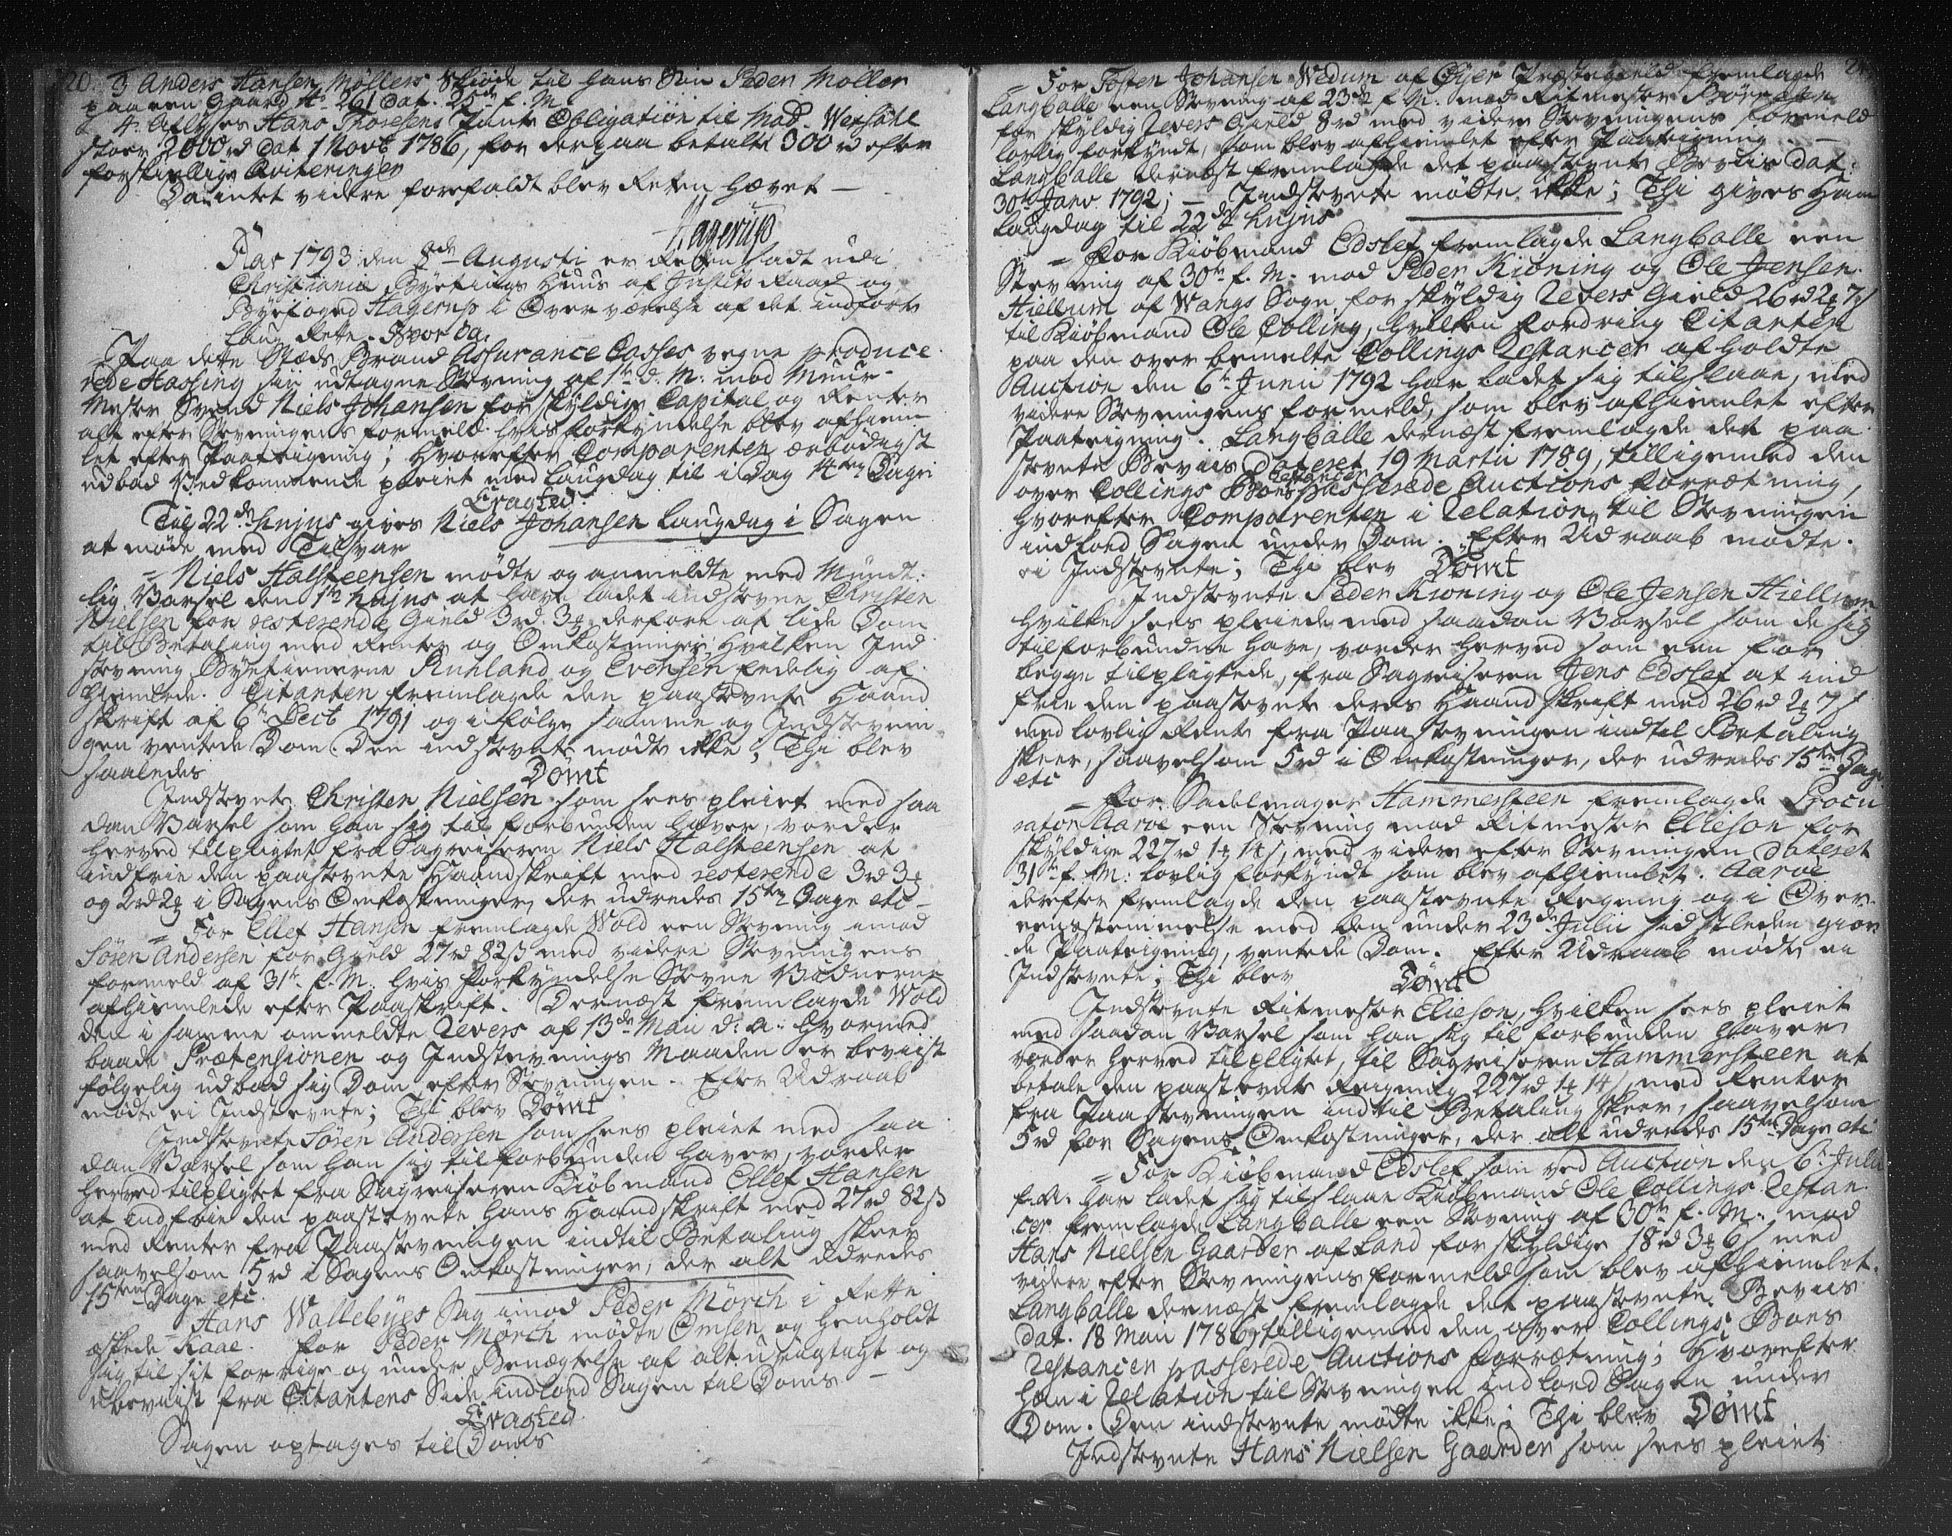 20.
3 Anders Hansen Møllers Skiøde til hans Søn Peder Møller
paa een Gaard No 261 dat. 25de f. M.
4. Aflyses Hans Thoresens Pante Obligation til Mad. Wexsahl
stoer 2000rd dat 1 Novb 1786, for derpaa betalte 300rd efter
forskiellige Qviteringer
Da intet videre forefaldt blev Retten hævet —
Hagerup
Aar 1793 den 8de Augusti er Retten sadt udi
Christiania Byetings Huus af Justits Raad og
Byefoged Hagerup i Overværelse af det indførte
Laug Rette. Hvor da:
Paa dette Stæds Brand Assurance Casses vegne produce
rede Hassing sin udtagne Stevning af 1te d. M. mod Muur-
Mester Svend Niels Johansen for skyldig Capital og Renter
alt efter Stevningens formeld hvis forkyndelse blev afhiem
let efter Paategning; Hvorefter Comparenten ærbødigst
udbad Vedkommende pleiet med Laugdag til i Dag 14ten Dage
Eragted
Til 22de hujus gives Niels Johansen Laugdag i Sagen
at møde med Tilsvar
= Niels Halsteensen mødte og anmeldte med Mundt-
lig Varsel den 1te hujus at have ladet indstevne Christen
Nielsen for resterende Gield 3rd. 3ß derfore at lide Dom
til Betaling med Renter og Omkostninger, Hvilken Ind
stevning Byetienerne Ruhland og Evensen Eedelig af
hiemlede. Citanten fremlagde den paastevnte Haand
skrift af 6te Decb 1791 og i følge samme og Indstevnin
gen ventede Dom. Den indstevnte mødte ikke; Thi blev
saaledes
Dømt
Indstevnte Christen Nielsen som sees pleiet med saa
dan Varsel som han sig til forbunden haver, vorder
herved tilpligtet fra Sagvriseren Niels Halsteensen at
indfrie den paastevnte Haandskrift med resterende 3rd 3
og 2rd 2 i Sagens Omkostninger, der udredes 15ten Dage etc —
= For Ellef Hansen fremlagde Wold een Stevning imod
Søren Andersen for Gield 27rd 82ß med videre Stevningens
formeld af 31te f. M. hvis forkyndelse Stevne Vidnerne
afhiemlede efter Paaskrift. Dernæst fremlagde Wold
den i samme ommeldte Revers af 13de Maii d. a. hvormed
baade Prætensionen og Indstevnings Maaden er beviist
følgelig udbad sig Dom efter Stevningen. Efter Udraab
mødte ei Indstevnte; Thi blev Dømt
Indstevnte Søren Andersen som sees pleiet med saa
dan Varsel som han sig til forbunden haver, vorder
herved tilpligtet fra Sagvriseren Kiøbmand Ellef Hansen
at indfrie den paastevnte hans Haandskrift med 27rd 82ß
med Renter fra Paastevningen indtil Betaling skeer
saavelsom 5rd i Sagens Omkostninger, der alt udredes
15ten Dage etc.
= Hans Wallebyes Sag imod Peder Mørch i Rette
æskede Kaae. For Peder Mørch mødte Omsen og henholdt
sig til sit forrige og under Benægtelse af alt urigtigt og
ubeviist fra Citantens Side indlod Sagen til Doms —
Eragted
Sagen optages til Doms
= For Tosten Johansen Wedum af Øyer Præstegield fremlagde
Langballe een Stevning af 23de f. M. mod Ritmester
for skyldig Revers Gield 8rd med videre Stevningens formeld
lovlig forkyndt, som blev afhiemlet efter Paategning. —
Langballe dernæst fremlagde det paastevnte Beviis dat.
30te Janv 1792; — Indstevnte mødte ikke; Thi gives ham
Laugdag til 22de hujus
= For Kiøbmand Edslef fremlagde Langballe een
Stevning af 30te f. M. mod Peder Kioning og Ole Jensen
Hiellum af Wangs Sogn for skyldig Revers Gield 26rd 2 7ß
til Kiøbmand Ole Colling, hvilken fordring Citanten
paa den over bemelte Collings Restancer afholdte
Auction den 6te Junii 1792 har ladet sig tilslaae, med
videre Stevningens formeld, som blev afhiemlet efter
Paategning. Langballe dernæst fremlagde det paa
stevnte Beviis dateret 19 Martii 1789, tilligemed den
over Collings Boes Restancer passerede Auctions forretning,
hvorefter Comparenten i Relation til Stevningen
indlod Sagen under Dom. Efter Udraab mødte
ei Indstevnte; Thi blev Dømt
Indstevnte Peder Kioning og Ole Jensen Hiellum
hvilke sees pleiede med saadan Varsel som de sig
tilforbundne have, vorder herved som een for
begge tilpligtede, fra Sagvriseren Jens Edslef at ind
frie den paastevnte deres Haandskrift med 26rd 2 7ß
med lovlig Rente fra Paastevningen indtil Betaling
skeer, saavelsom 5rd i Omkostninger, der udredes 15ten Dage
etc
= For Sadelmager Hammersteen fremlagde Procu
rator Aaroe een Stevning mod Ritmester Elieson for
skyldige 227rd 1 14ß, med videre efter Stevningen dateret
31te f. M. lovlig forkyndt som blev afhiemlet. Aaroe
derefter fremlagde den paastevnte Regning og i Over
eensstemmelse med den under 23de Julii sidstleden giør
de Paategning, ventede Dom. Efter Udraab mødte ei
Indstevnte; Thi blev Dømt
Indstevnte Ritmester Elieson, hvilken sees pleiet
med saadan Varsel som han sig til forbunden haver
vorder herved tilpligtet, til Sagvriseren Hammersteen at
betale den paastevnte Regning 227rd 1 14ß med Renter
fra Paastevningen indtil Betaling skeer, saavelsom
5rd for Sagens Omkostninger, der alt udredes 15ten Dage etc
= For Kiøbmand Edslef som ved Auction den 6te Julii
f. A. har ladet sig tilslaae Kiøbmand Ole Collings Restan
cer fremlagde Langballe een Stevning af 30te f. M. mod
Hans Nielsen Gaarder af Land for skyldige 18rd 3 6ß med
videre efter Stevningens formeld som blev afhiemlet.
Langballe dernæst fremlagde det paastevnte Beviis
dat. 18 Maii 1786, tilligemed den over Collings Boes
Restancer passerede Auctions forretning; Hvorefter
han i Relation til Stevningen indlod Sagen under
Dom. Den indstevnte mødte ikke; Thi blev Dømt
Indstevnte Hans Nielsen Gaarder som sees pleiet